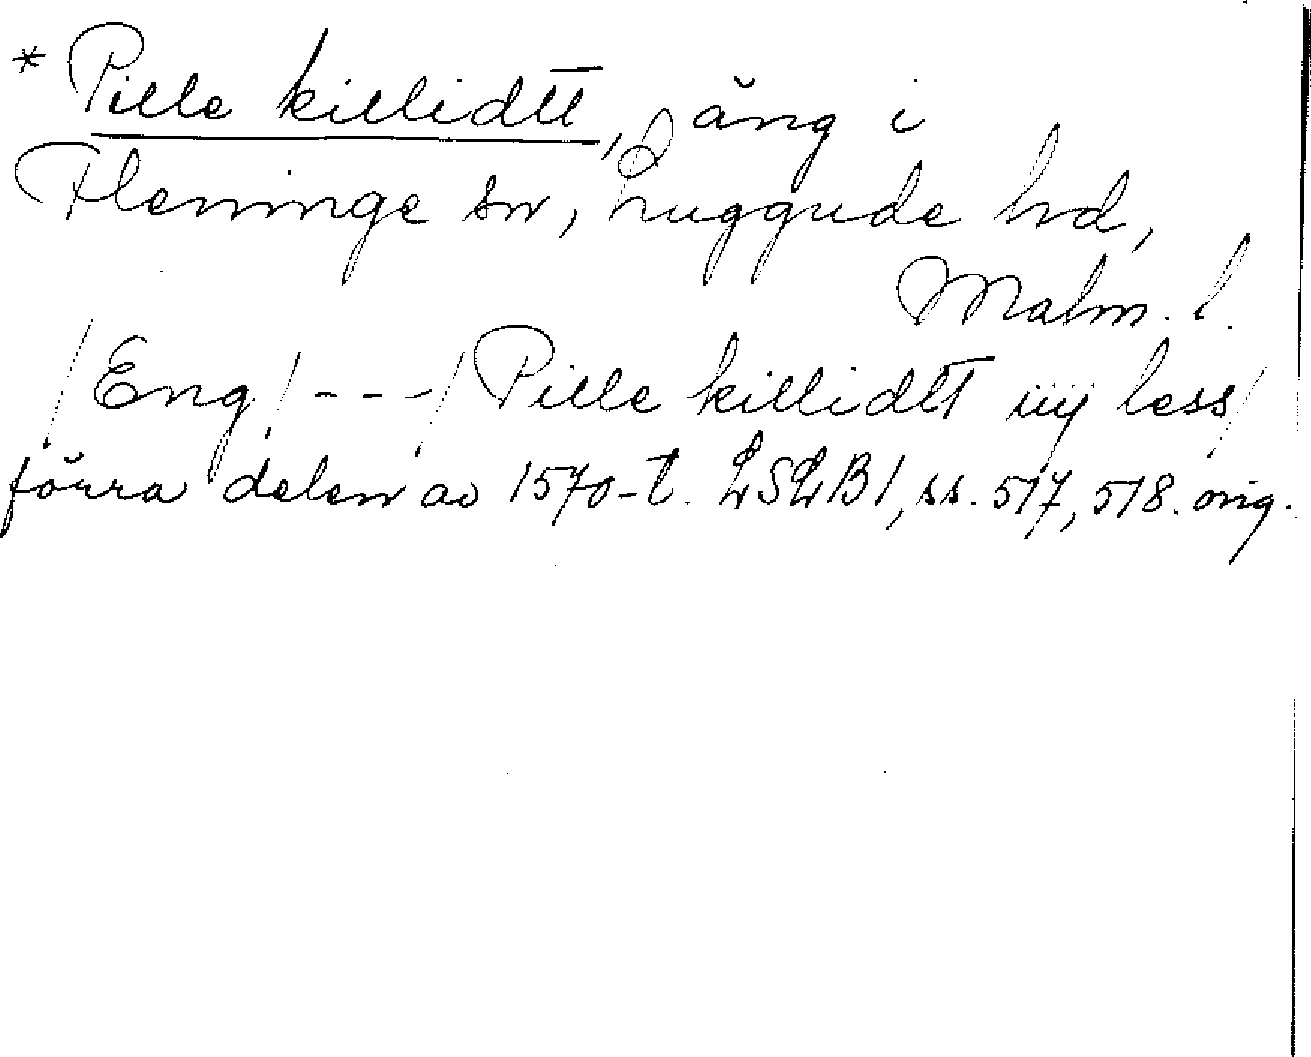 * Pille killidtt, äng i
Fleninge sn, Luggude hd,
Malm. l.
/Eng/ - - - / Pille killidtt iiij less/
förra delen av 1570-t. LSLB1, ss. 517, 518. orig.